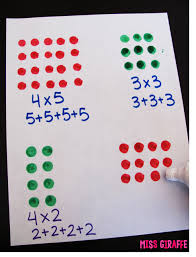 4x5
5+5+5+5
3x3
3+3+3
4x2
2+2+2+2
MISS GIRAFFE